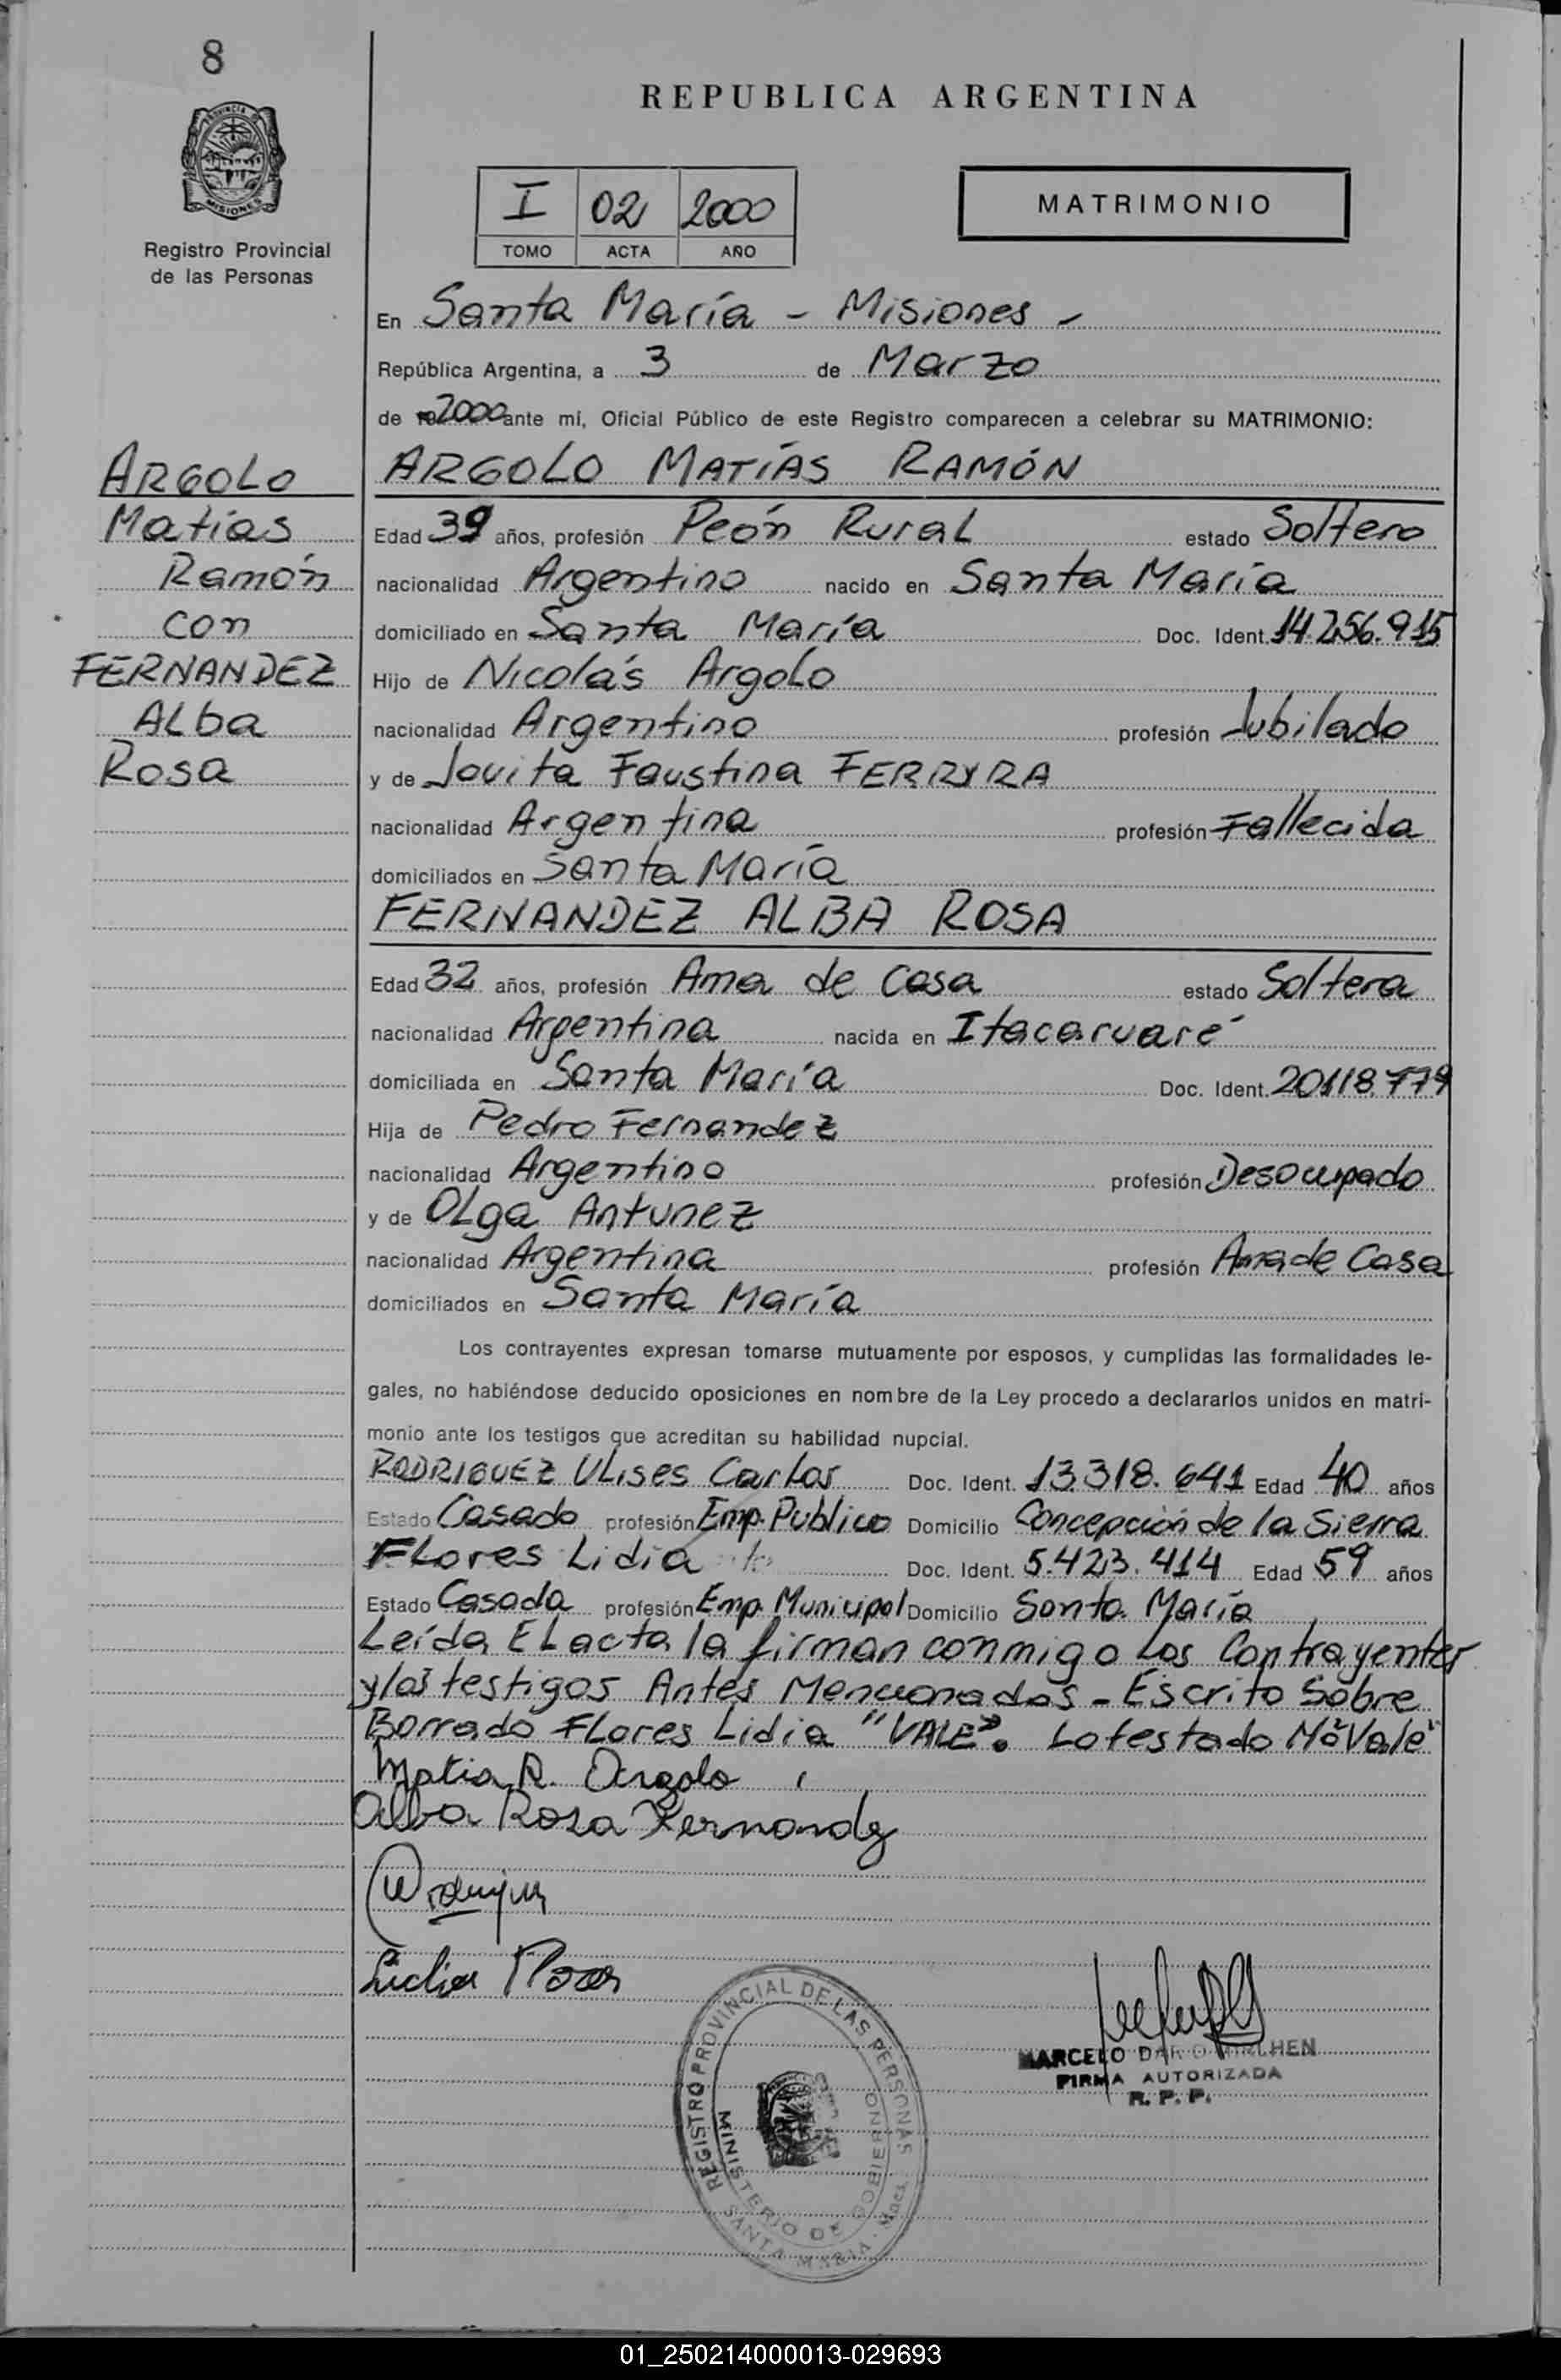 8
PROVINCIA DE
MISIONES
Registro Provincial
de las Personas
REPUBLICA ARGENTINA
I 02 2000
TOMO ACTA AÑO
MATRIMONIO
En Santa María - Misiones -
República Argentina, a 3 de Marzo
de 2000 ante mí, Oficial Público de este Registro comparecen a celebrar su MATRIMONIO:
ARGOLO
Matías
Ramón
con
FERNANDEZ
Alba
Rosa
ARGOLO MATÍAS RAMÓN
Edad 39 años, profesión Peón Rural estado Soltero
nacionalidad Argentino nacido en Santa María
domiciliado en Santa María Doc. Ident. 14.256.915
Hijo de Nicolás Argolo
nacionalidad Argentino profesión Jubilado
y de Jovita Faustina FERRYRA
nacionalidad Argentina profesión Fallecida
domiciliados en Santa María
FERNANDEZ ALBA ROSA
Edad 32 años, profesión Ama de Casa estado Soltera
nacionalidad Argentina nacida en Itacaruaré
domiciliada en Santa María Doc. Ident. 20.118.779
Hija de Pedro Fernandez
nacionalidad Argentino profesión Desocupado
y de Olga Antunez
nacionalidad Argentina profesión Ama de Casa
domiciliados en Santa María
Los contrayentes expresan tomarse mutuamente por esposos, y cumplidas las formalidades le-
gales, no habiéndose deducido oposiciones en nombre de la Ley procedo a declararlos unidos en matri-
monio ante los testigos que acreditan su habilidad nupcial.
RODRIGUEZ Ulises Carlos Doc. Ident. 13.318.641 Edad 40 años
Estado Casado profesión Emp. Publico Domicilio Concepción de la Sierra
Flores Lidia Doc. Ident. 5.423.414 Edad 59 años
Estado Casada profesión Emp. Municipal Domicilio Santa María
Leída El acta la firman conmigo los Contrayentes
y los testigos Antes Mencionados - Escrito Sobre
Borrado Flores Lidia "VALE". Lo testado No Vale"
Matia R. Argolo
Alba Rosa Fernandez
Lidia Flores
REGISTRO PROVINCIAL DE LAS PERSONAS
MINISTERIO DE GOBIERNO
SANTA MARIA - Mnes.
MARCELO
FIRMA AUTORIZADA
R. P. P.
01_250214000013-029693